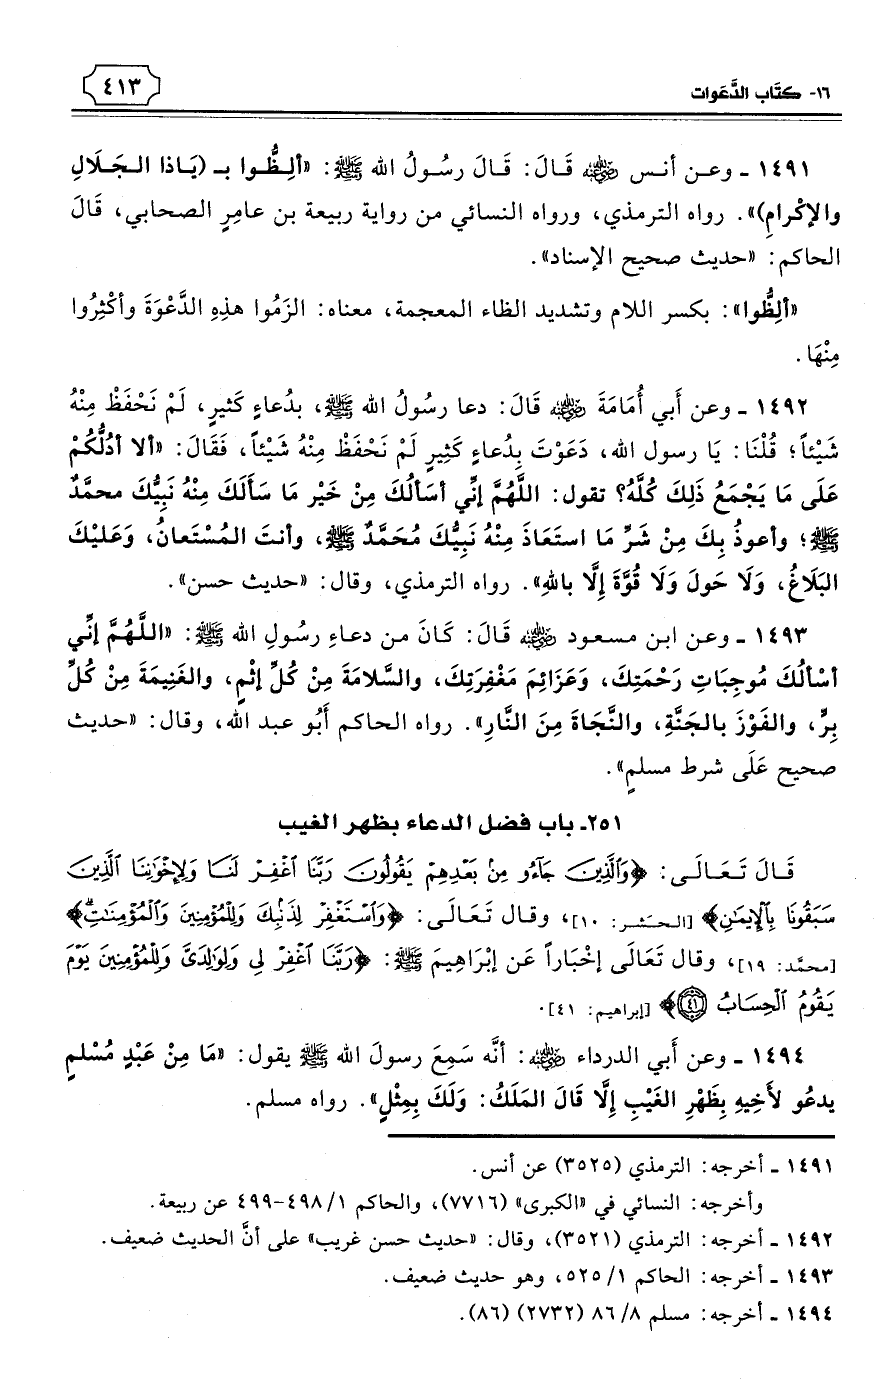 ١٦- كتَاب الدَّعَوات
٤١٣
١٤٩١ ـ وعـن أنـس ﵁ قَـالَ: قَـالَ رَسُـولُ الله ﷺ: «ألِـظُّـوا بـ (يَـاذا الـجَـلَالِ
والإكْرامِ)». رواه الترمذي، ورواه النسائي من رواية ربيعة بن عامِرٍ الصحابي، قَالَ
الحاكم: «حديث صحيح الإسناد».
«ألِظُّوا»: بكسر اللام وتشديد الظاء المعجمة، معناه: الزَمُوا هذِهِ الدَّعْوَةَ وأكْثِرُوا
مِنْهَا.
١٤٩٢ ـ وعن أَبي أُمَامَةَ ﵁ قَالَ: دعا رسُولُ الله ﷺ، بدُعاءٍ كَثيرٍ، لَمْ نَحْفَظْ مِنْهُ
شَيْئاً؛ قُلْنَا: يَا رسول الله، دَعَوْتَ بِدُعاءٍ كَثِيرٍ لَمْ نَحْفَظْ مِنْهُ شَيْئاً، فَقَالَ: «ألا أدُلُّكُمْ
عَلَى مَا يَجْمَعُ ذَلِكَ كُلَّهُ؟ تقول: اللَّهُمَّ إنِّي أسَألُكَ مِنْ خَيْرِ مَا سَأَلَكَ مِنْهُ نَبِيُّكَ محمَّدٌ
ﷺ؛ وأعوذُ بِكَ مِنْ شَرِّ مَا استَعَاذَ مِنْهُ نَبِيُّكَ مُحَمَّدٌ ﷺ، وأنتَ المُسْتَعانُ، وَعَليْكَ
البَلَاغُ، وَلَا حَولَ وَلَا قُوَّةَ إِلَّا باللهِ». رواه الترمذي، وقال: «حديث حسن».
١٤٩٣ ـ وعن ابن مسعود ﵁ قَالَ: كَانَ من دعاءِ رسُولِ الله ﷺ: «اللَّهُمَّ إنِّي
أسْألُكَ مُوجِبَاتِ رَحْمَتِكَ، وَعَزائِمَ مَغْفِرَتِكَ، والسَّلامَةَ مِنْ كُلِّ إثْمٍ، والغَنِيمَةَ مِنْ كُلِّ
بِرٍّ، والفَوْزَ بالجَنَّةِ، والنَّجَاةَ مِنَ النَّارِ». رواه الحاكم أَبُو عبد الله، وقال: «حديث
صحيح عَلَى شرط مسلمٍ».
٢٥١ـ باب فضل الدعاء بظهر الغيب
قَالَ تَعَالَى: ﴿وَٱلَّذِينَ جَآءُو مِنۢ بَعۡدِهِمۡ يَقُولُونَ رَبَّنَا ٱغۡفِرۡ لَنَا وَلِإِخۡوَٰنِنَا ٱلَّذِينَ
سَبَقُونَا بِٱلۡإِيمَٰنِ﴾ [الحَشر: ١٠]، وقال تَعَالَى: ﴿وَٱسۡتَغۡفِرۡ لِذَنۢبِكَ وَلِلۡمُؤۡمِنِينَ وَٱلۡمُؤۡمِنَٰتِۗ﴾
[محمَّد: ١٩]، وقال تَعَالَى إخْبَاراً عَن إبْرَاهِيمَ ﷺ: ﴿رَبَّنَا ٱغۡفِرۡ لِي وَلِوَٰلِدَيَّ وَلِلۡمُؤۡمِنِينَ يَوۡمَ
يَقُومُ ٱلۡحِسَابُ ٤١﴾ [إبراهيم: ٤١].
١٤٩٤ ـ وعن أَبي الدرداء ﵁: أنَّه سَمِعَ رسولَ الله ﷺ يقول: «مَا مِنْ عَبْدٍ مُسْلمٍ
يدعُو لأَخِيهِ بِظَهْرِ الغَيْبِ إِلَّا قَالَ المَلَكُ: وَلَكَ بِمِثْلٍ». رواه مسلم.
١٤٩١ ـ أخرجه: الترمذي (٣٥٢٥) عن أنس.
وأخرجه: النسائي في «الكبرى» (٧٧١٦)، والحاكم ١/ ٤٩٨-٤٩٩ عن ربيعة.
١٤٩٢ ـ أخرجه: الترمذي (٣٥٢١)، وقال: «حديث حسن غريب» على أنَّ الحديث ضعيف.
١٤٩٣ ـ أخرجه: الحاكم ١/ ٥٢٥، وهو حديث ضعيف.
١٤٩٤ ـ أخرجه: مسلم ٨/ ٨٦ (٢٧٣٢) (٨٦).